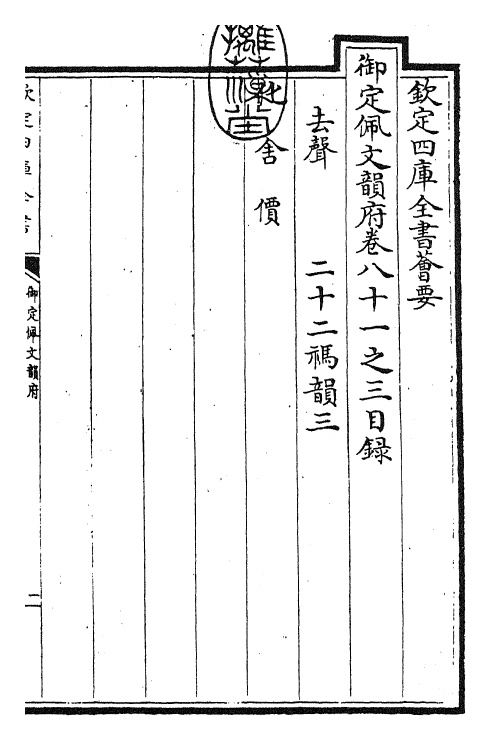 欽定四庫全書薈要
御定佩文韻府卷八十一之三目録
去聲 二十二禡韻三
化 舍 價
摛藻堂
欽定四庫全書
御定佩文韻府
二